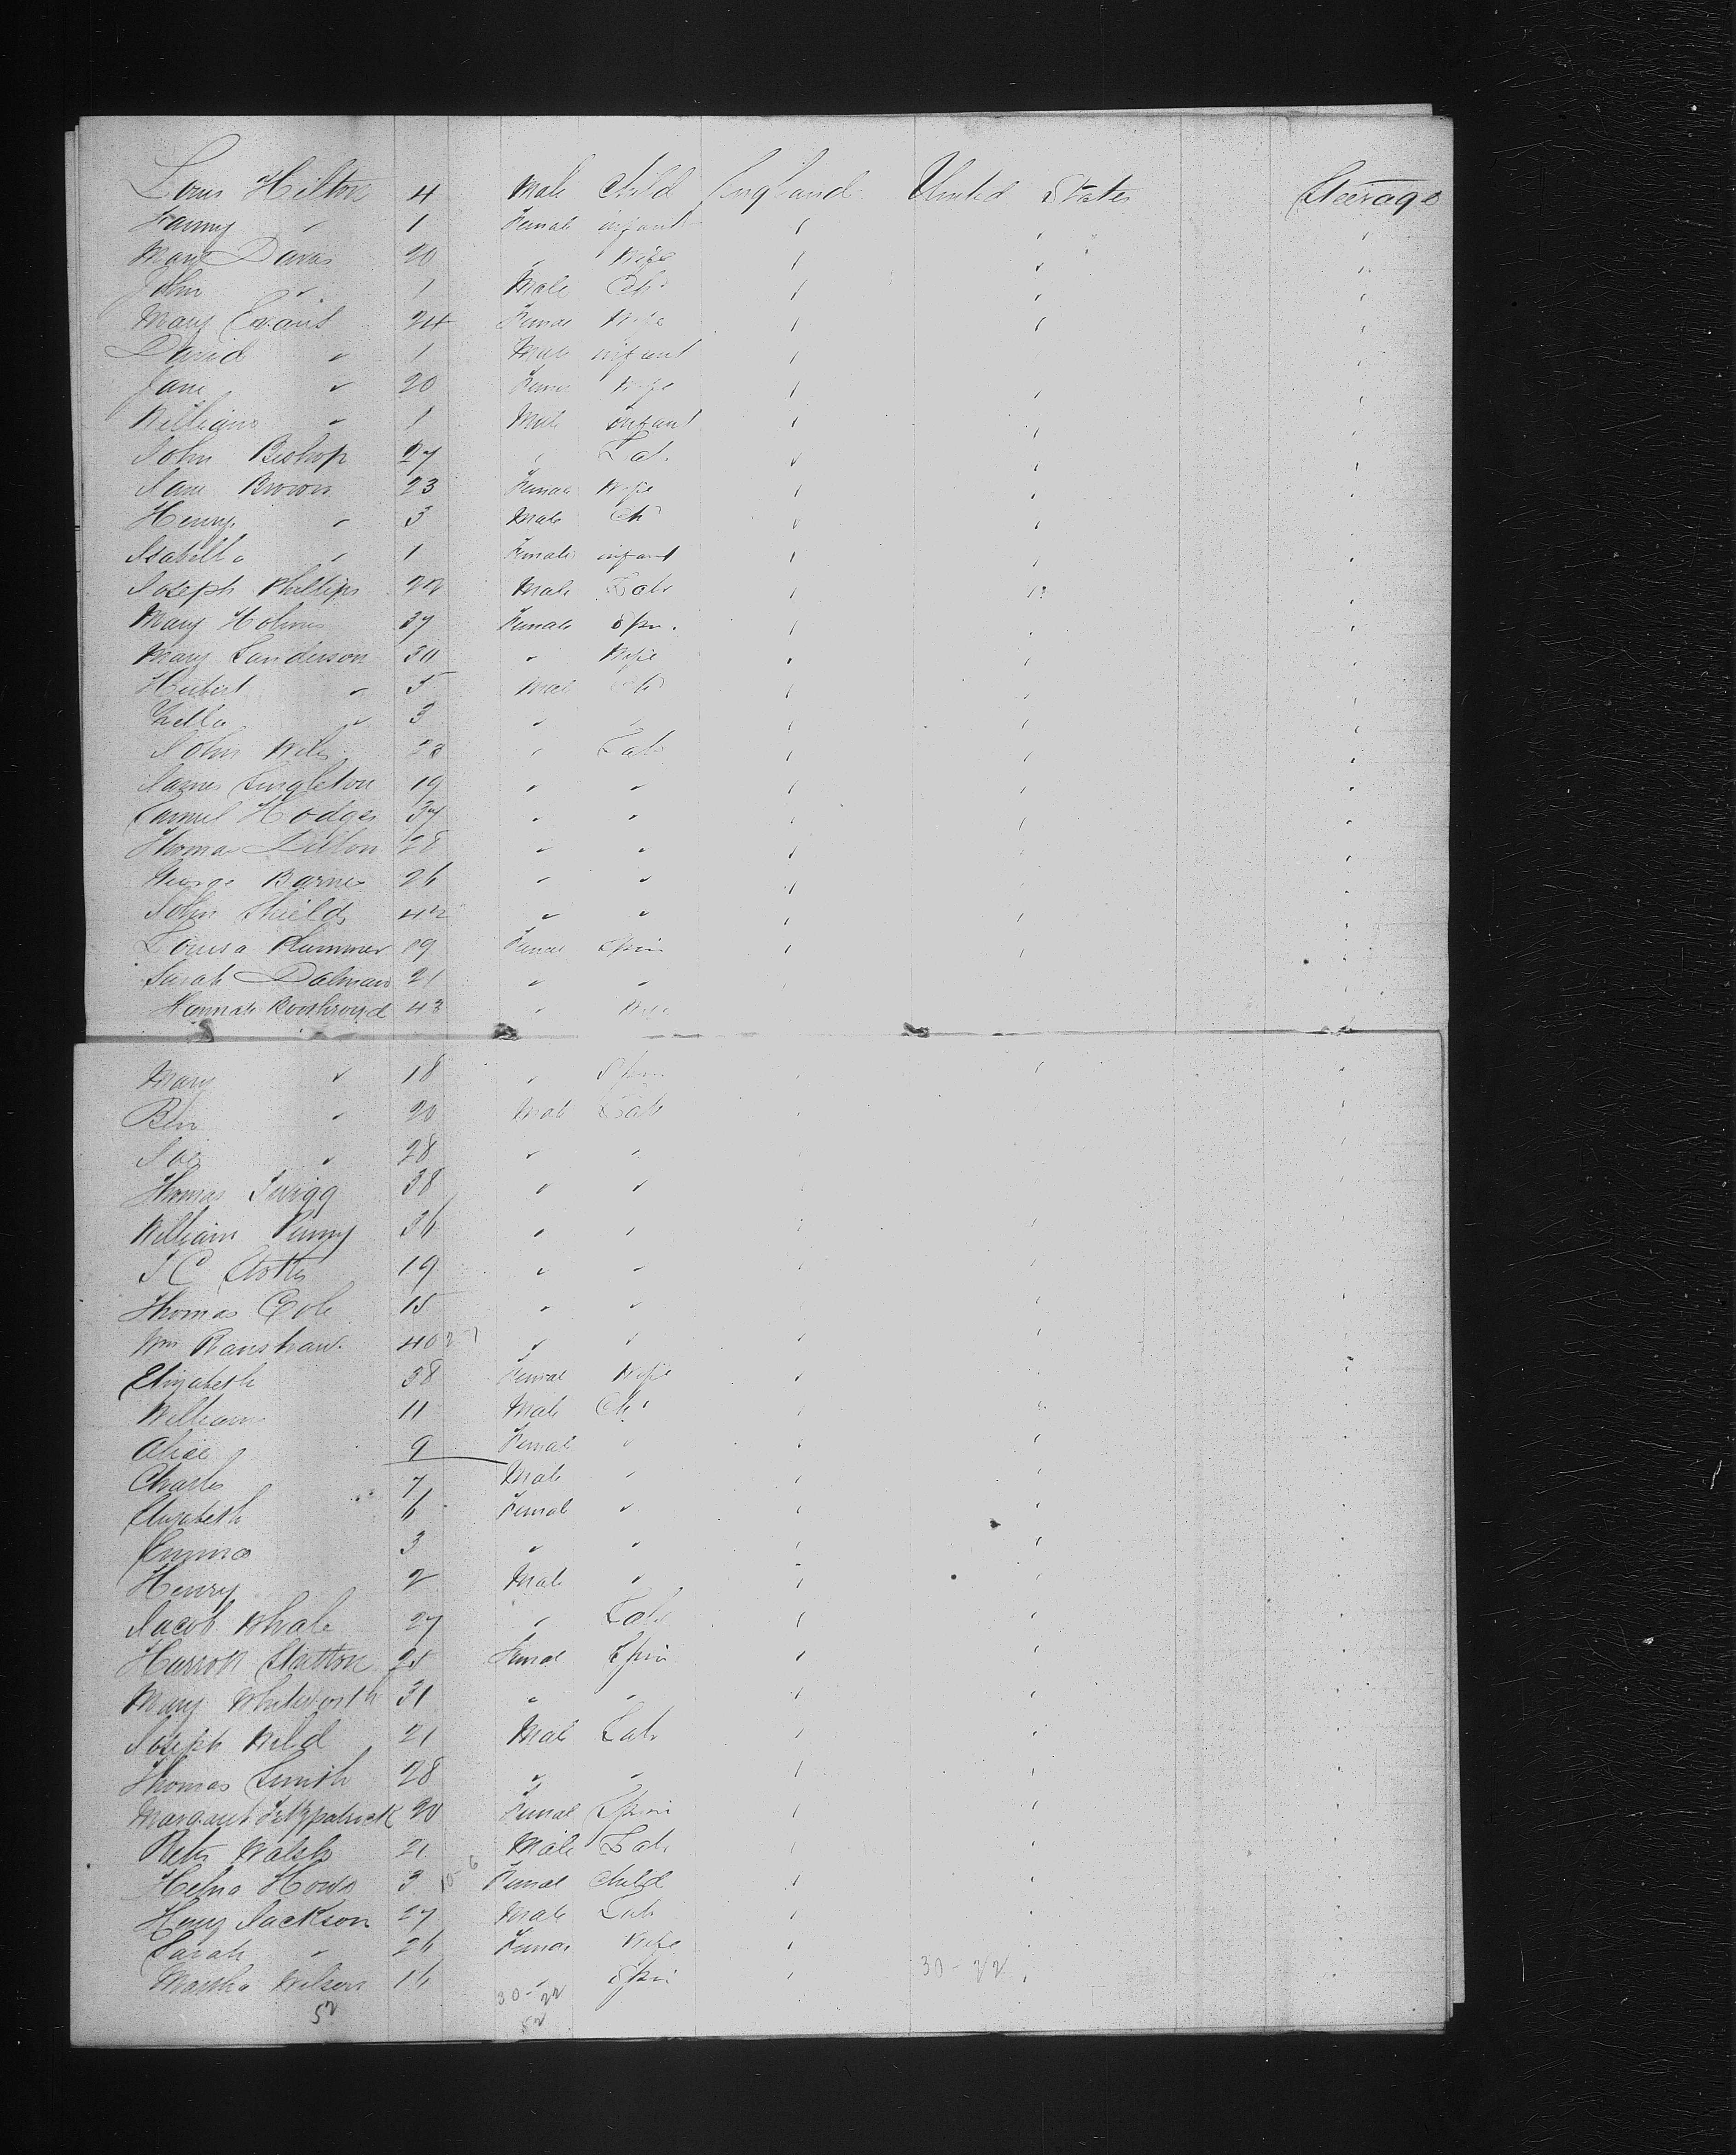 Louis Hilton 4 Male Child England United States Steerage
Fanny " 1 Female infant " " "
Mary Davis 20 " Wife " " "
John " 1 Male Ch " " "
Mary Evans 24 Female Wife " " "
David " 1 Male infant " " "
Jane " 20 Female Wife " " "
William " 1 Male infant " " "
John Bishop 27 " Lab. " " "
Jane Brown 23 Female Wife " " "
Henry " 3 Male Ch " " "
Isabella " 1 Female infant " " "
Joseph Phillips 22 Male Labr " " "
Mary Holmes 37 Female Spin. " " "
Mary Sanderson 30 " Wife " " "
Herbert " 5 Male Ch " " "
" 3 " " " " "
John 23 " Lab " " "
James Singleton 19 " " " " "
Samuel Hodges 37 " " " " "
Thomas Dillon 28 " " " " "
George Barnes 26 " " " " "
John Shields 42 " " " " "
Louisa Plummer 19 Female Spin " " "
Sarah Dalman 21 " " " " "
Hannah Boothroyd 43 " Wife
Mary " 18 " Spin " " "
Ben " 20 Male Lab " "
Joe " 28 " " "
Thomas Twigg 38 " " "
William Penny 36 " " " " "
J C 19 " " " " "
Thomas Cole 15 " " " " "
Wm Ranshaw 40 " " " " "
Elizabeth 38 Female Wife " "
William 11 Male Ch " " "
Alice 9 Female " " " "
Charles 7 Male " " " "
Elizabeth 6 Female " " " "
Emma 3 " " " " "
Henry 2 Male " " " "
Jacob Whale 27 " Labr " " "
Stratton 25 Female Spin " " "
Mary Whitworth 31 " " " " "
Joseph Wild 21 Male Labr " " "
Thomas Smith 28 " " " " "
Margaret Fitzpatrick 20 Female Spin " " "
Peter Walsh 21 Male Lab. " " "
3 Female Child " " "
Henry Jackson 27 Male Lab " " "
Sarah " 26 Female Wife " " "
Martha Wilson 16 " Spin " " "
30-22 30-22
52 52